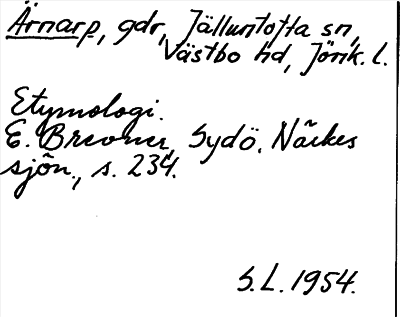 Ärnarp, gdr, Jälluntofta sn,
Västbo hd, Jönk. l.
Etymologi.
E. Brevner, Sydö. Närkes
sjön., s. 234.
S.L. 1954.